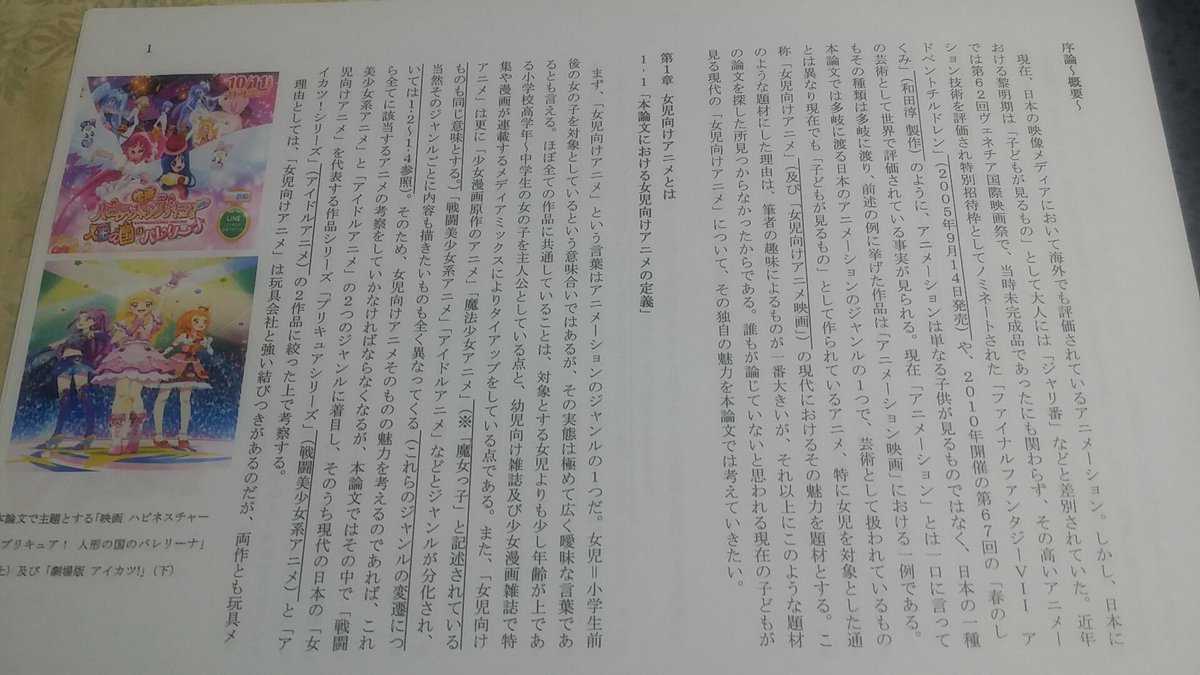 序論～概要～
現在、日本の映像メディアにおいて海外でも評価されているアニメーション。しかし、日本に
おける黎明期は「子どもが見るもの」として大人には「ジャリ番」などと差別されていた。近年
では第62回ヴェネチア国際映画祭で、当時未完成品であったにも関わらず、その高いアニメー
ション技術を評価され特別招待枠としてノミネートされた「ファイナルファンタジーVII ア
ドベントチルドレン」（2005年9月14日発売）や、2010年開催の第67回の「春のし
くみ」（和田淳 製作）のように、アニメーションは単なる子供が見るものではなく、日本の一種
の芸術として世界で評価されている事実が見られる。現在「アニメーション」とは一口に言って
もその種類は多岐に渡り、前述の例に挙げた作品は「アニメーション映画」における一例である。
本論文では多岐に渡る日本のアニメーションのジャンルの1つで、芸術として扱われているもの
とは異なり現在でも「子どもが見るもの」として作られているアニメ、特に女児を対象とした通
称「女児向けアニメ」（及び「女児向けアニメ映画」）の現代におけるその魅力を題材とする。こ
のような題材にした理由は、筆者の趣味によるものが一番大きいが、それ以上にこのような題材
の論文を探した所見つからなかったからである。誰もが論じていないと思われる現在の子どもが
見る現代の「女児向けアニメ」について、その独自の魅力を本論文では考えていきたい。
第1章 女児向けアニメとは
1-1「本論文における女児向けアニメの定義」
まず、「女児向けアニメ」という言葉はアニメーションのジャンルの1つだ。女児＝小学生前
後の女の子を対象としているという意味合いではあるが、その実態は極めて広く曖昧な言葉であ
るとも言える。ほぼ全ての作品に共通していることは、対象とする女児よりも少し年齢が上であ
る小学校高学年～中学生の女の子を主人公としている点と、幼児向け雑誌及び少女漫画雑誌で特
集や漫画が連載するメディアミックスによりタイアップをしている点である。また、「女児向け
アニメ」は更に「少女漫画原作のアニメ」「魔法少女アニメ」（※「魔女っ子」と記述されている
ものも同じ意味とする。）「戦闘美少女系アニメ」「アイドルアニメ」などとジャンルが分化され、
当然そのジャンルごとに内容も描きたいものも全く異なってくる（これらのジャンルの変遷につ
いては1-2～1-4参照）。そのため、女児向けアニメそのものの魅力を考えるのであれば、これ
ら全てに該当するアニメの考察をしていかなければならなくなるが、本論文ではその中で「戦闘
美少女系アニメ」と「アイドルアニメ」の2つのジャンルに着目し、そのうち現代の日本の「女
児向けアニメ」を代表する作品シリーズ「プリキュアシリーズ」（戦闘美少女系アニメ）と「ア
イカツ！シリーズ」（アイドルアニメ）の2作品に絞った上で考察する。
理由としては、「女児向けアニメ」は玩具会社と強い結びつきがあるのだが、両作とも玩具メ
10/11
人形の国のバレリーナ
LINE
本論文で主題とする「映画 ハピネスチャー
プリキュア！ 人形の国のバレリーナ」
上）及び「劇場版 アイカツ!」（下）
1